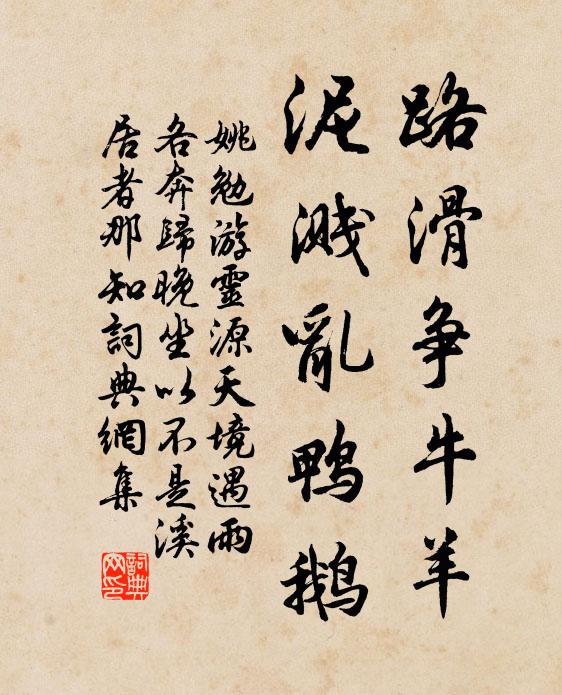 路滑争牛羊
泥溅亂鴨鵝
姚勉游靈源天境遇雨
各奔歸晚坐以不是溪
居者那知詞典網集
詞典
网印